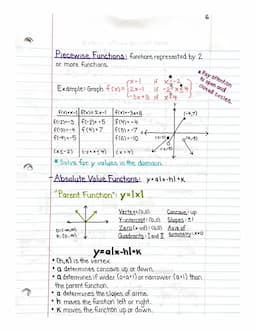 6
Piecewise Functions: functions represented by 2
or more functions.
Example: Graph f(x)=
x-1 if x≤-2
2x-1 if -2<x≤4
-3x+8 if x>4
* Pay attention
to open and
closed circles.
f(x)=x-1 f(x)=2x-1 f(x)=-3x+8
f(-2)=-3 f(-2)=-5 f(4)=-4
f(-3)=-4 f(4)=7 f(5)=-7
f(-4)=-5 f(6)=-10
(x≤-2) (-2<x≤4) (x>4)
(4,7)
* Solve for y values in the domain.
Absolute Value Functions: y=a|x-h|+k
"Parent Function": y=|x|
Vertex: (0,0) Concave: up
Y-intercept: (0,0) Slopes: ±1
Zero (x-int): (0,0) Axis of
Quadrants: I and II Symmetry: x=0
y=a|x-h|+k
• (h,k) is the vertex
• a determines concave up or down.
• a determines if wider (0<a<1) or narrower (a>1) than
the parent function.
• a determines the slopes of arms.
• h moves the function left or right.
• K moves the function up or down.